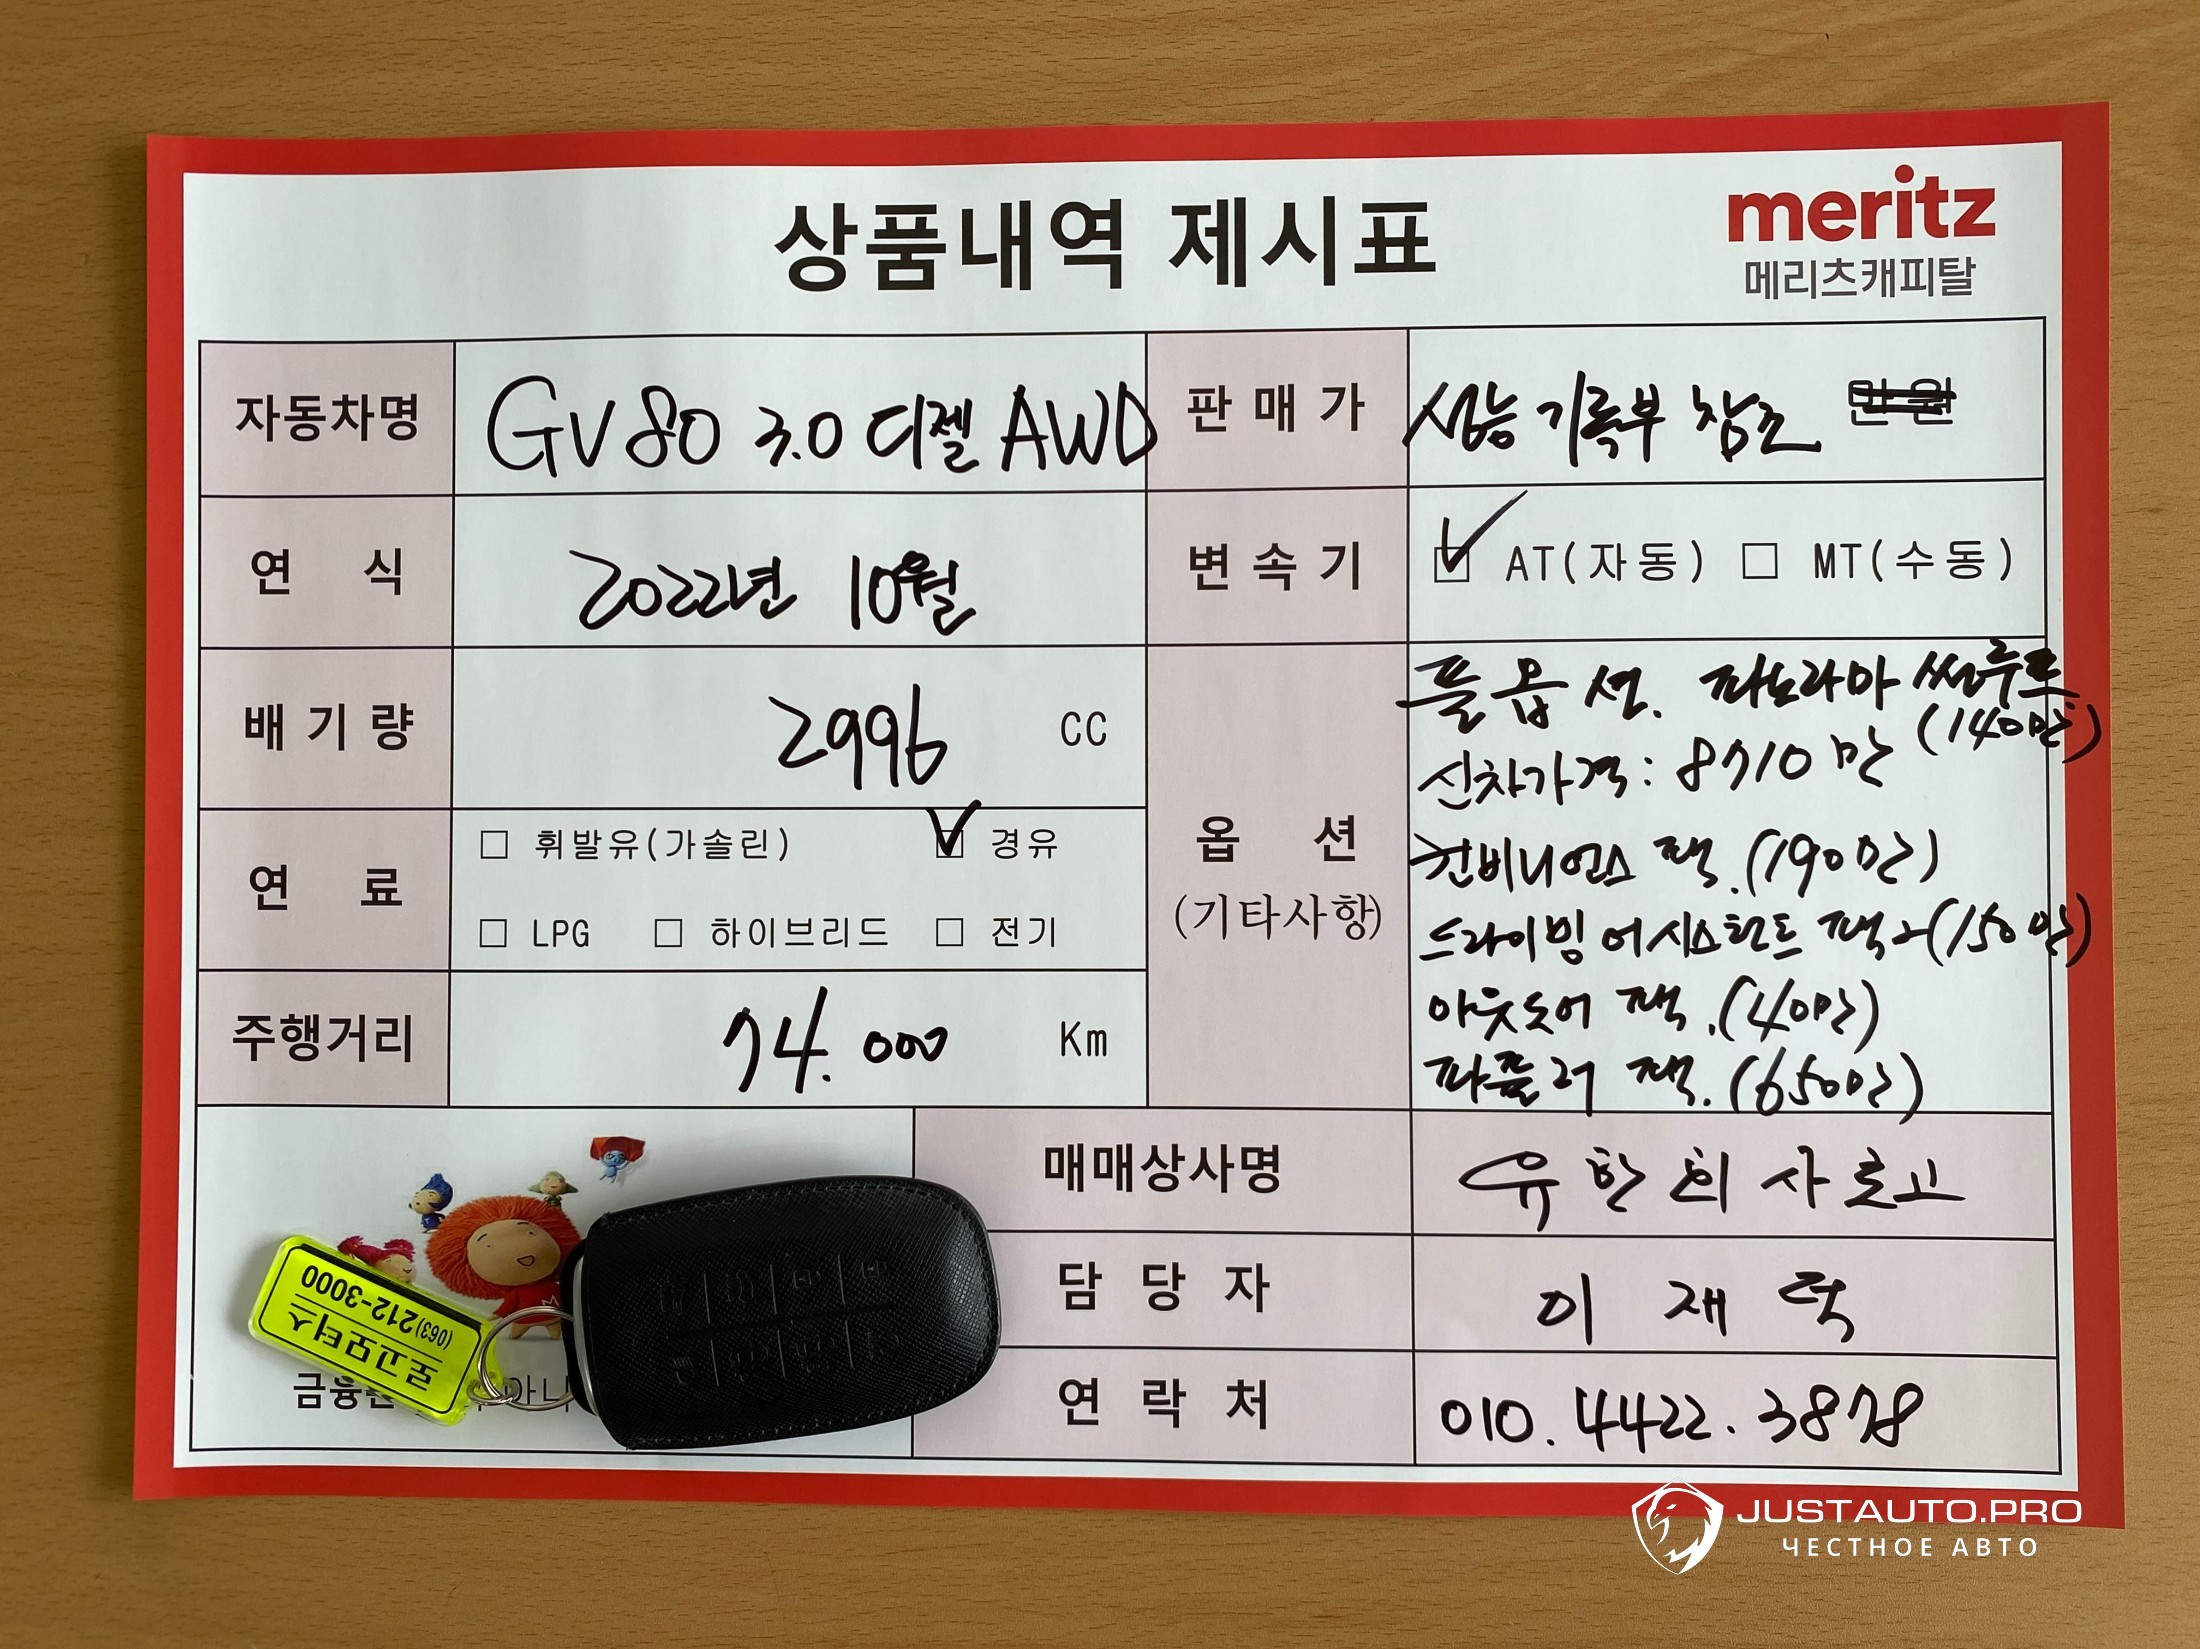 상품내역 제시표
meritz
메리츠캐피탈
자동차명
GV80 3.0 디젤 AWD
판매가
성능기록부 참조 만원
연 식
2022년 10월
변속기
☑ AT(자동) ☐ MT(수동)
배기량
2996 CC
연 료
☐ 휘발유(가솔린) ☑ 경유
☐ LPG ☐ 하이브리드 ☐ 전기
주행거리
74.000 Km
옵 션
(기타사항)
풀옵션. 파노라마 썬루프
(140만)
신차가격: 8710만
컨비니언스 팩.(190만)
드라이빙 어시스턴트 팩2(150만)
아웃도어 팩.(40만)
파퓰러 팩.(650만)
매매상사명
유한회사로고
담당자
이재덕
연락처
010.4422.3878
로고모터스
(063)212-3000
금융
아니
JUSTAUTO.PRO
ЧЕСТНОЕ АВТО